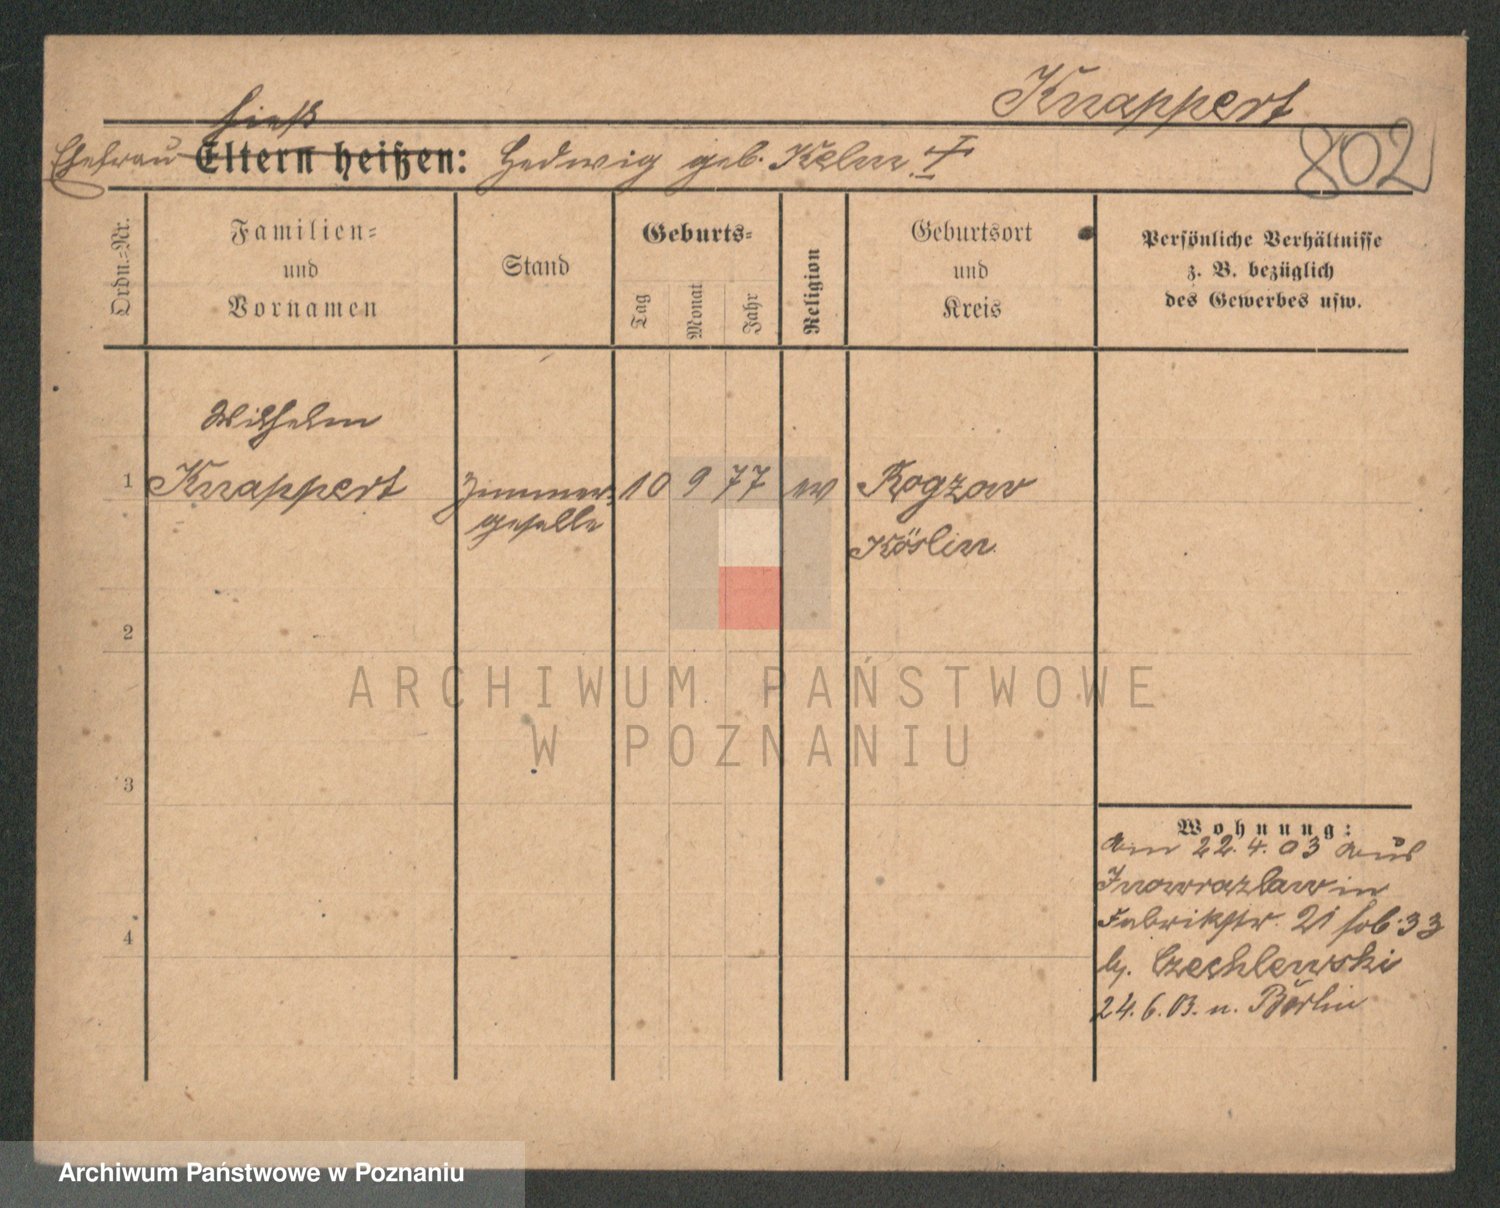 Knappert
802
hieß
Ehefrau Eltern heißen: Hedwig geb. Kelm. †
Ordn.-Nr.
Familien-
und
Vornamen
Stand
Geburts-
Tag
Monat
Jahr
Religion
Geburtsort
und
Kreis
Persönliche Verhältnisse
z. B. bezüglich
des Gewerbes usw.
Wilhelm
1 Knappert Zimmer- 10 9 77 ev Rogzow
geselle
Köslin
2
3
4
ARCHIWUM PAŃSTWOWE
W POZNANIU
Wohnung:
am 22.4.03 aus
Inowrazlaw in
Fabrikstr. 21
b. Czechlewski
24.6.03. n. Berlin
Archiwum Państwowe w Poznaniu